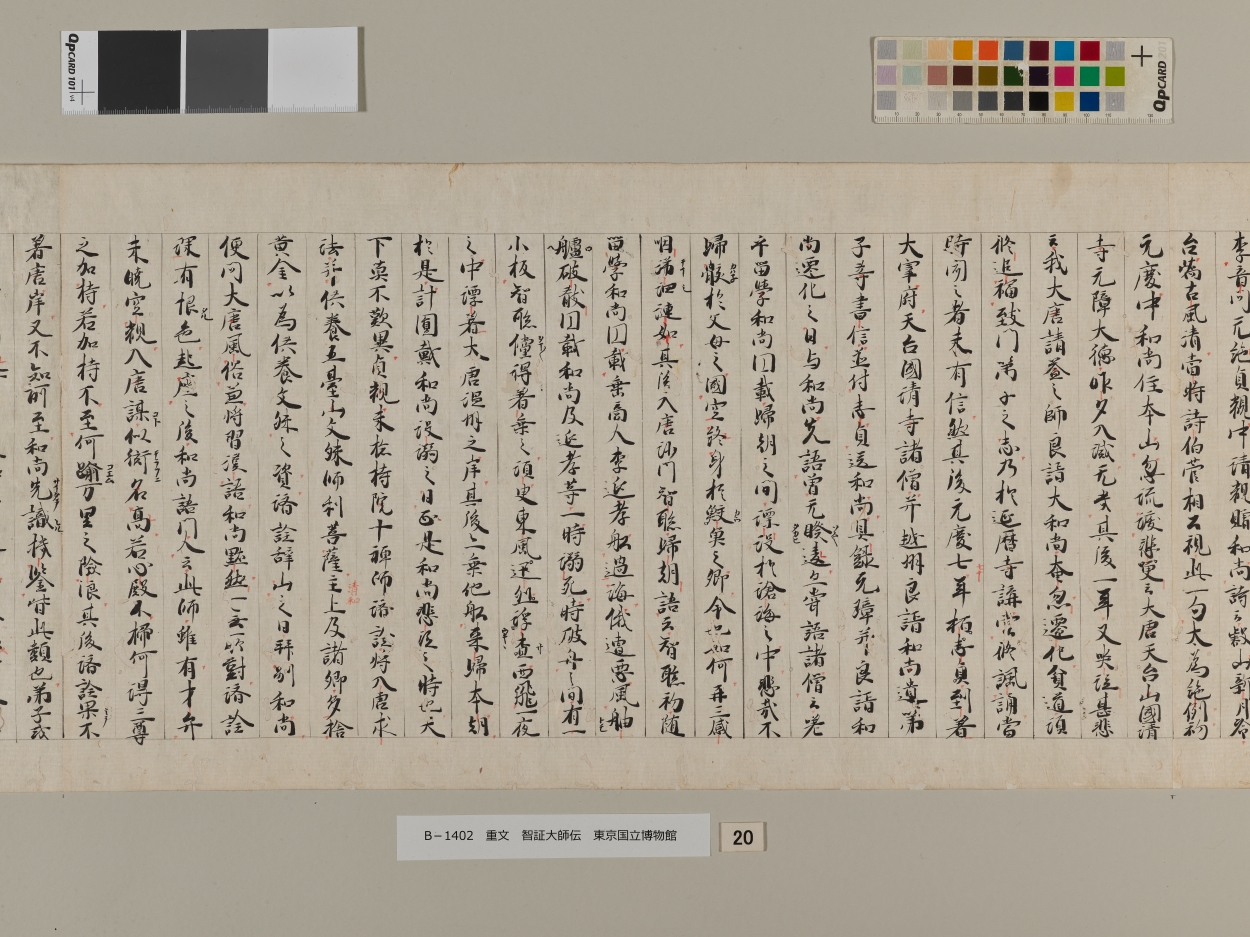 台嶺古風清當時詩伯菅相公視此一句大為絶倒初
元慶中和尚住本山忽流涙悲哽云大唐天台山國清
寺元璋大德昨夕入滅无幾其後一年又哭泣甚悲
云我大唐請益之師良諝大和尚奄忽遷化貧道須
修追福致門弟子之志乃於延曆寺講堂修諷誦當
時聞之者未有信然其後元慶七年栢志貞到著
大宰府天台國清寺諸僧并越州良諝和尚遺弟
子等書信並付志貞送和尚具錄元璋并良諝和
尚遷化之日与和尚先語曾元睽違尓甞語諸僧云
乎留學和尚円載歸朝之間漂沒於滄海之中悲哉不
歸骸於父母之國空終身於鮫魚之鄉命也如何再三感
咽涕泗漣如其後入唐沙門智聰歸朝語云智聰初随
留學和尚円載乗商人李延孝舩過海俄遭惡風舳
艫破散円載和尚及延孝等一時溺死時破舟之間有一
小板智聰僅得著乗之須臾東風迅烈浮査西飛一夜
之中漂著大唐温州之岸其後亦乗他舩来歸本朝
於是計圓載和尚沒溺之日正是和尚悲泣之時也天
下莫不歎異貞觀末捴持院十禪師濟詮將入唐求
法并供養五臺山文殊師利菩薩主上及諸卿多捨
黄金以為供養文殊之資濟詮辭山之日拜別和尚
便問大唐風俗兼將習漢語和尚黙然一无所對濟詮
深有恨色起座之後和尚語門人云此師雖有才弁
未曉空觀入唐謀似衒名高若心殿不掃何得三尊
之加持若加持不至何踰万里之險浪其後濟詮果不
着唐岸又不知所至和尚先識機鑒皆此類也弟子或
B－1402　重文　智証大師伝　東京国立博物館
20
QPCARD 101 v4
QPCARD 201